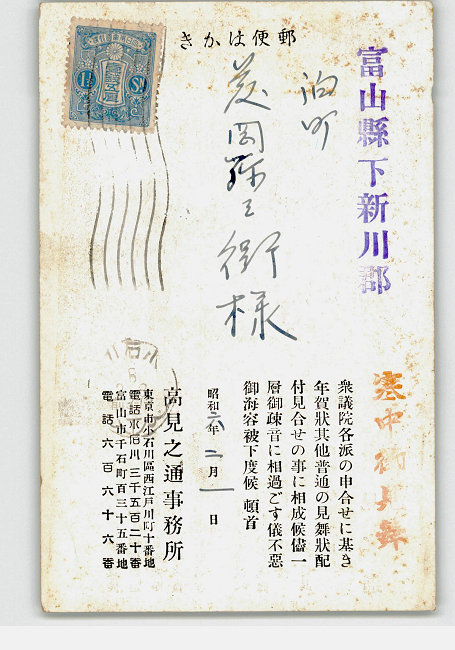 郵便はかき
富山縣下新川郡
泊町
様
寒中御見舞
衆議院各派の申合せに基き
年賀狀其他普通の見舞狀配
付見合せの事に相成候儘一
層御疎音に相過ごす儀不惡
御海容被下度候 頓首
昭和 年二月一日
高見之通事務所
東京市小石川區西江戸川町十番地
電話小石川三千五百二十番
富山市千石町百三十五番地
電話六百六十六番